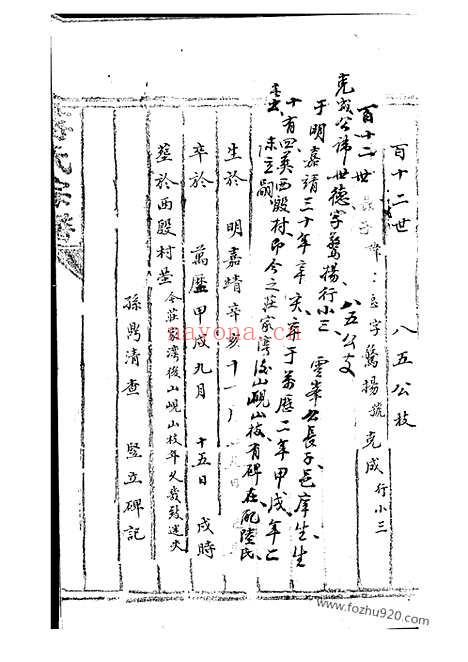 百十二世 八五公枝
諱 字驚揚號克成 行小三
百十二世 八五公支
克成公諱世德字驚揚行小三 雲峯公長子邑庠生生
于明嘉靖三十年辛亥卒于萬曆二年甲戌年二
十有四葬西殿村即今之莊家灣後山峴山枝有碑在配陸氏
未立嗣
生於 明嘉靖辛亥十一月
卒於 萬曆甲戌九月 十五日 戌時
葬於西殿村塋 今莊家灣後山峴山枝年久發致迷失
孫鼎清查 豎立碑記
氏宗譜
nayona.cn
www.fozhu920.com